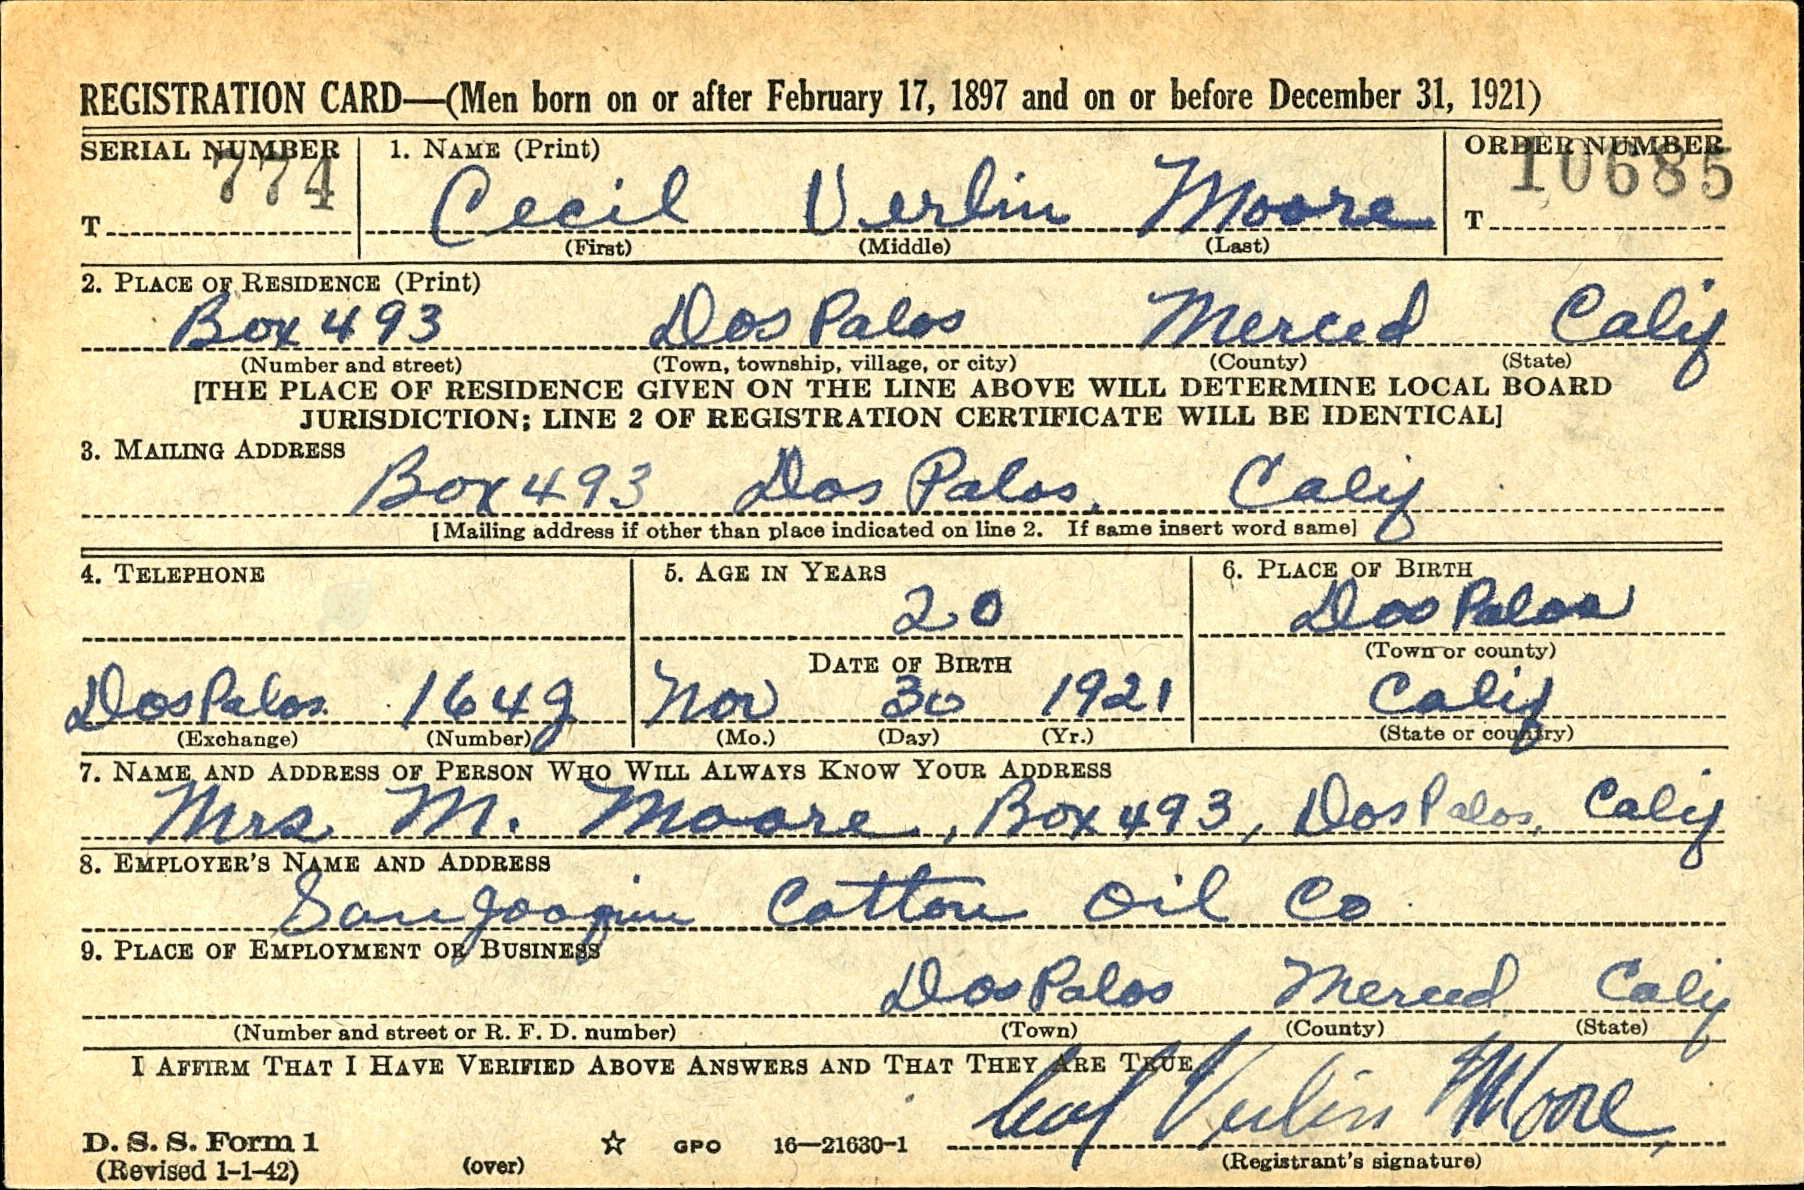 REGISTRATION CARD—(Men born on or after February 17, 1897 and on or before December 31, 1921)
SERIAL NUMBER 1. NAME (Print) ORDER NUMBER
774 10685
T Cecil Verlin Moore T
(First) (Middle) (Last)
2. PLACE OF RESIDENCE (Print)
Box 493 Dos Palos Merced Calif
(Number and street) (Town, township, village, or city) (County) (State)
[THE PLACE OF RESIDENCE GIVEN ON THE LINE ABOVE WILL DETERMINE LOCAL BOARD
JURISDICTION; LINE 2 OF REGISTRATION CERTIFICATE WILL BE IDENTICAL]
3. MAILING ADDRESS
Box 493 Dos Palos, Calif
[Mailing address if other than place indicated on line 2. If same insert word same]
4. TELEPHONE 5. AGE IN YEARS 6. PLACE OF BIRTH
20 Dos Palos
DATE OF BIRTH (Town or county)
Dos Palos 164J Nov 30 1921 Calif
(Exchange) (Number) (Mo.) (Day) (Yr.) (State or country)
7. NAME AND ADDRESS OF PERSON WHO WILL ALWAYS KNOW YOUR ADDRESS
Mrs M. Moore, Box 493, Dos Palos, Calif
8. EMPLOYER'S NAME AND ADDRESS
San Joaquin Cotton Oil Co
9. PLACE OF EMPLOYMENT OR BUSINESS
Dos Palos Merced Calif
(Number and street or R. F. D. number) (Town) (County) (State)
I AFFIRM THAT I HAVE VERIFIED ABOVE ANSWERS AND THAT THEY ARE TRUE
Cecil Verlin Moore
D. S. S. Form 1 ☆ GPO 16—21630-1
(Revised 1-1-42) (over) (Registrant's signature)